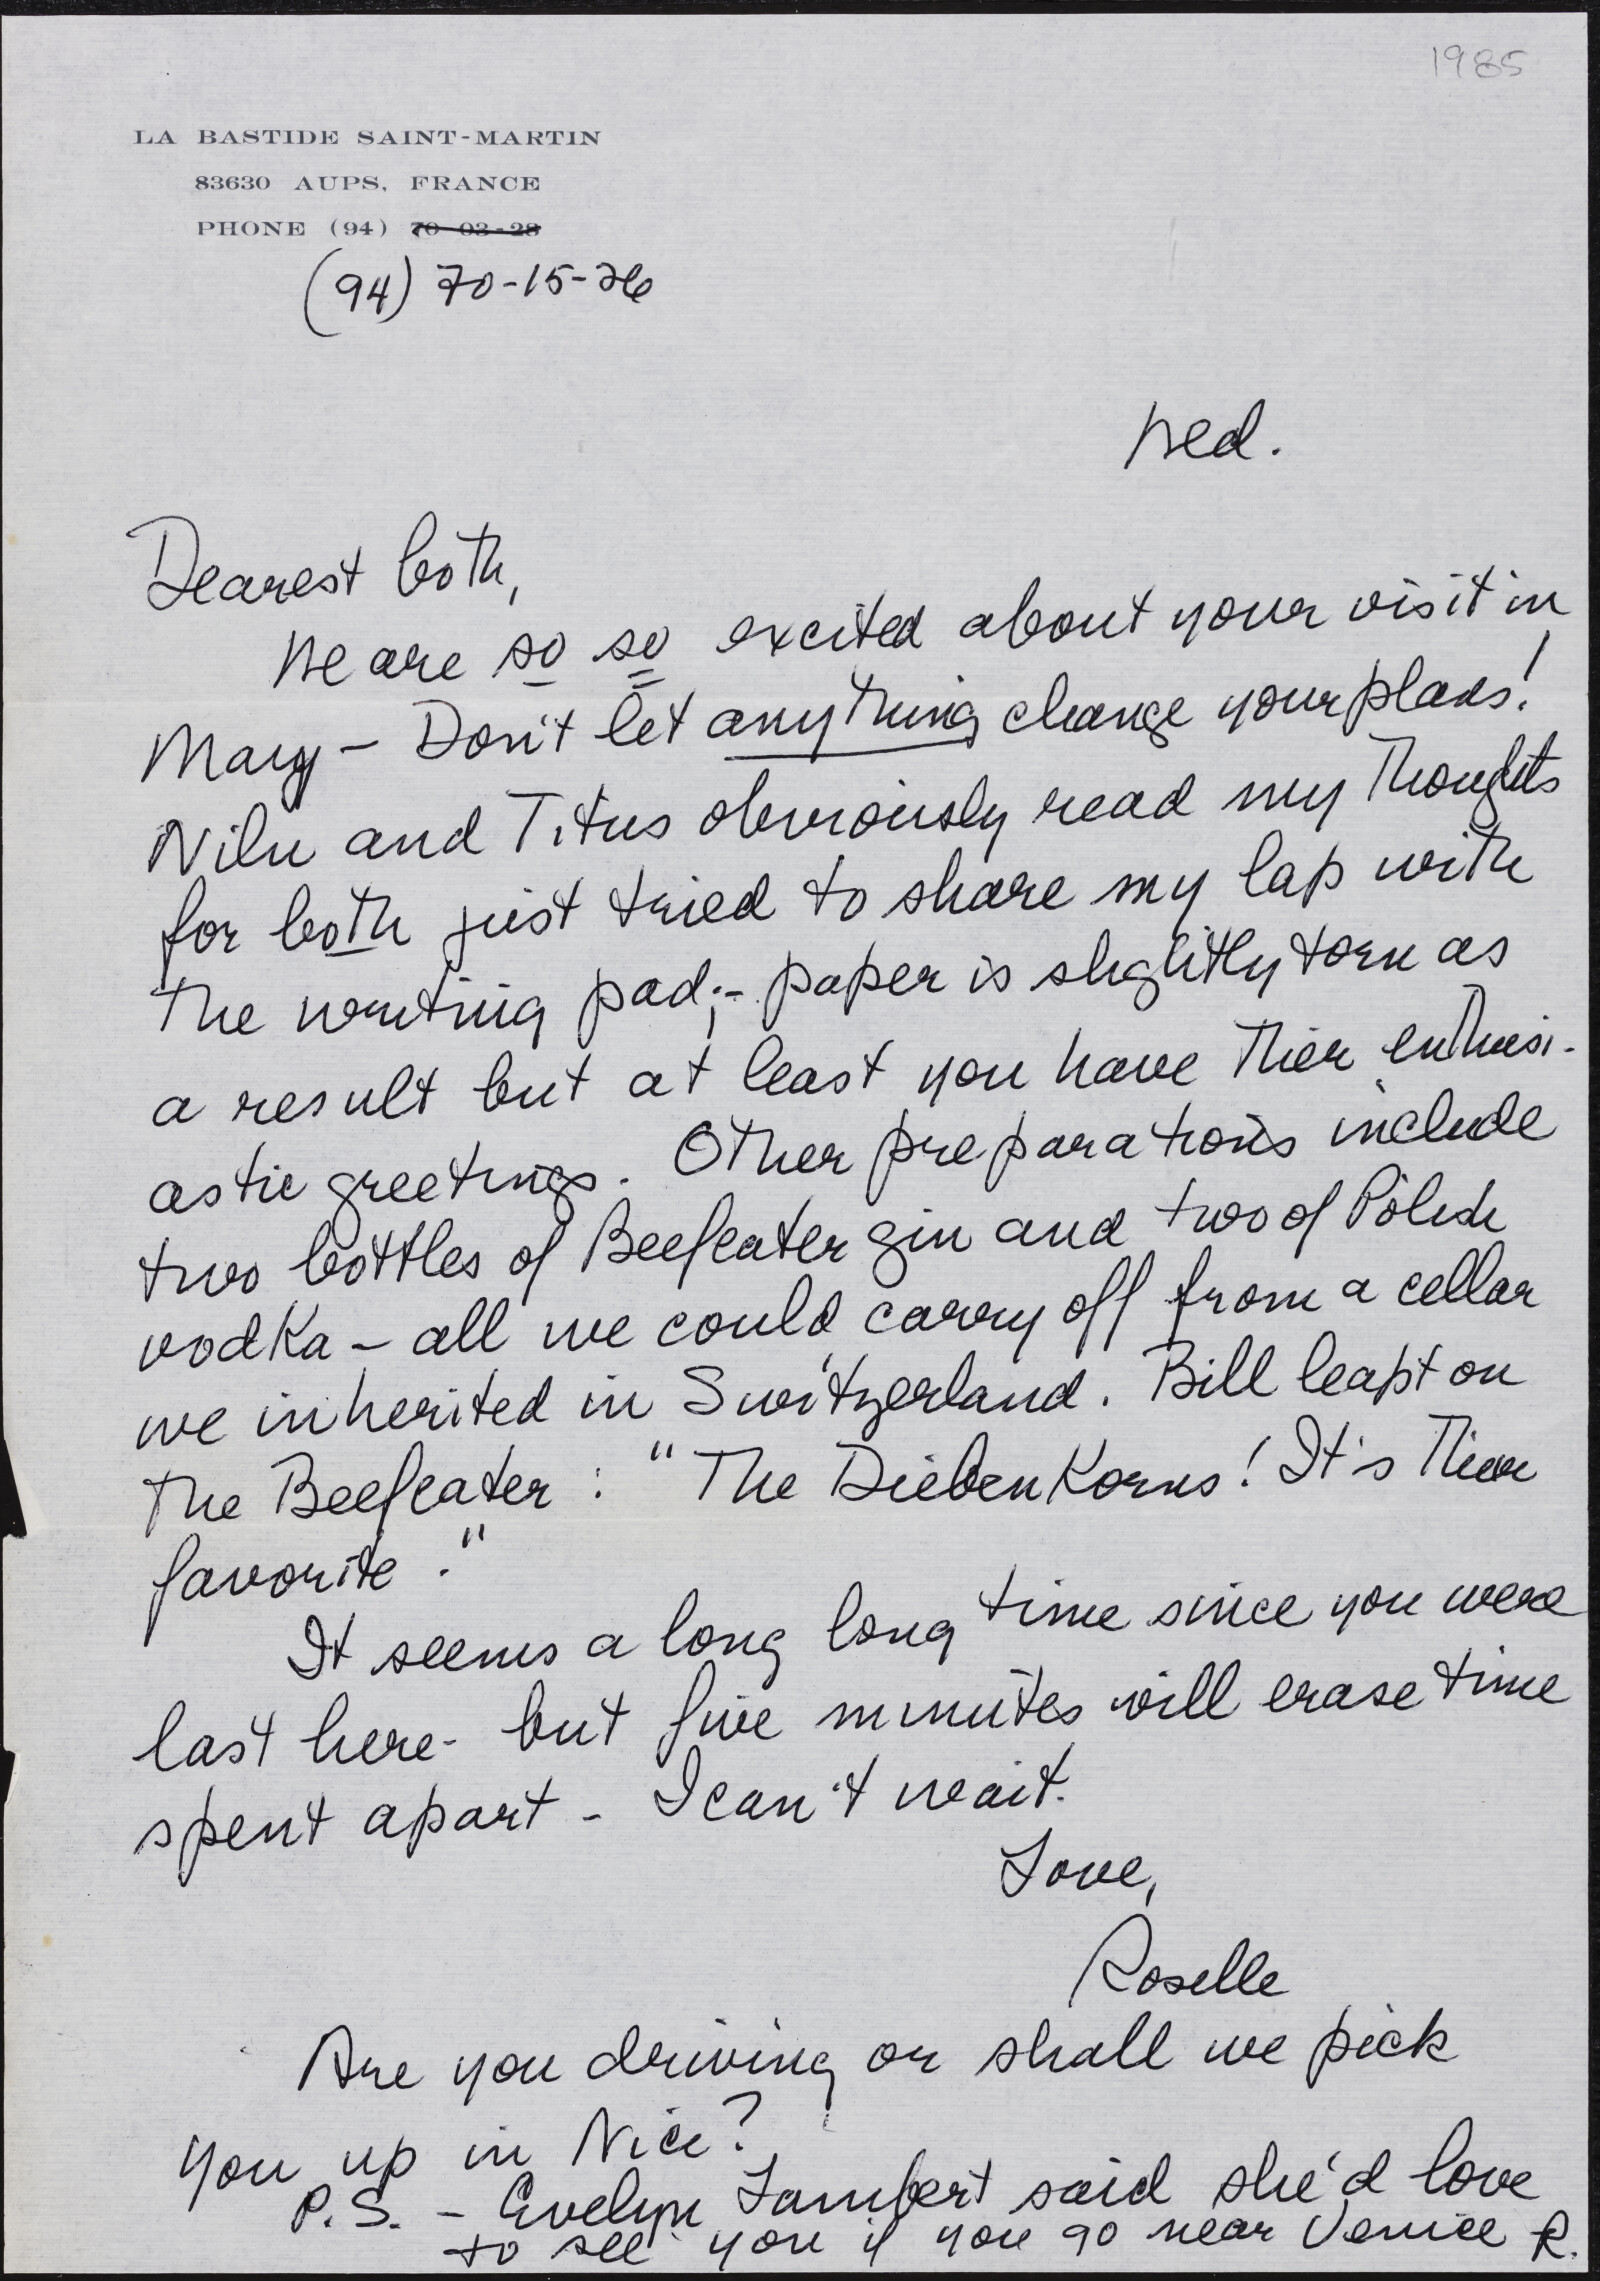 1985
LA BASTIDE SAINT-MARTIN
83630 AUPS, FRANCE
PHONE (94) 70-03-28
(94) 70-15-26
Wed.
Dearest both,
We are so so excited about your visit in
May - Don't let anything change your plans!
Nilu and Titus obviously read my thoughts
for both just tried to share my lap with
the writing pad;- paper is slightly torn as
a result but at least you have thier enthusi-
astic greetings. Other preparations include
two bottles of Beefeater gin and two of Polish
vodka - all we could carry off from a cellar
we inherited in Switzerland. Bill leapt on
the Beefeater : "The Diebenkorns! It's thier
favorite."
It seems a long long time since you were
last here - but five minutes will erase time
spent apart - I can't wait.
Love,
Roselle
Are you driving or shall we pick
you up in Nice?
P.S. - Evelyn Lambert said she'd love
to see you if you go near Venice R.